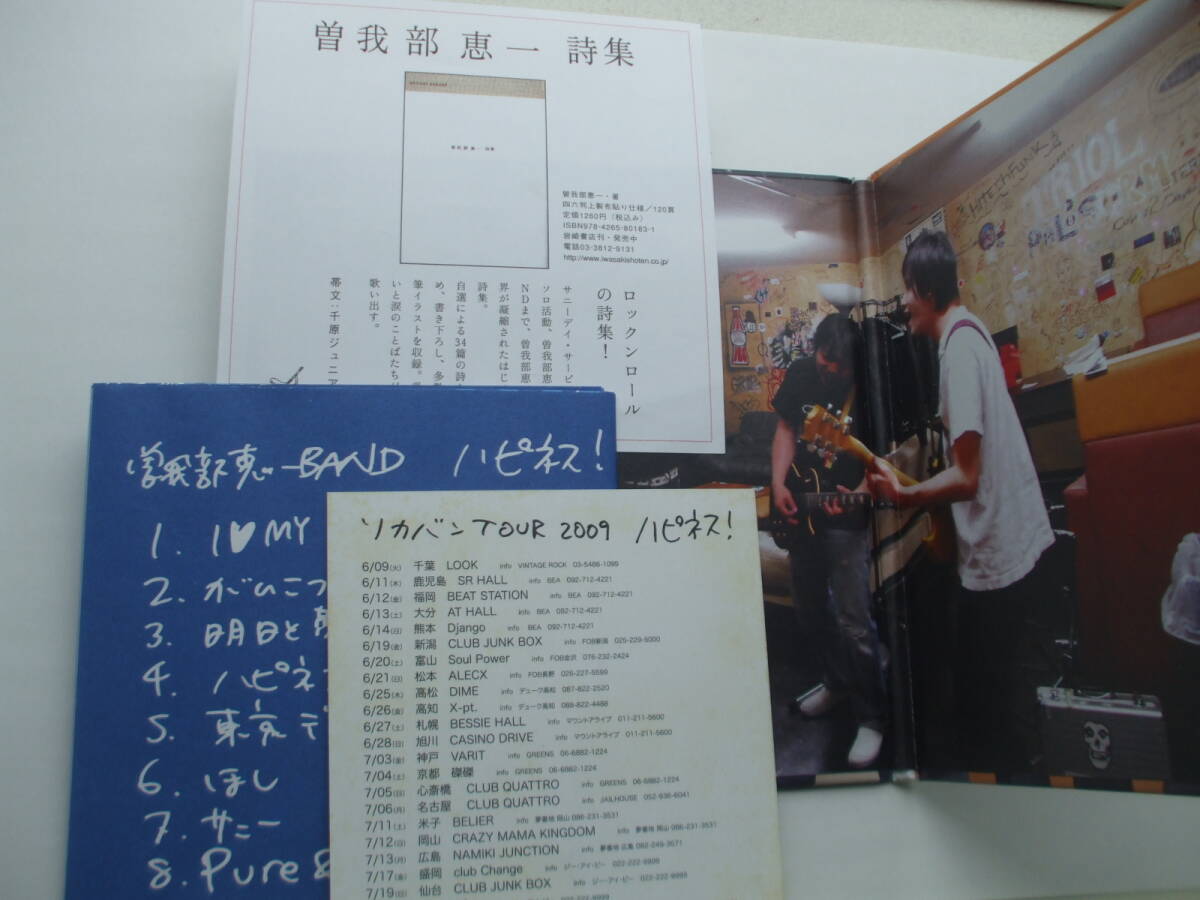 曽我部恵一 詩集
曽我部恵一 詩集
曽我部恵一・著
四六判上製布貼り仕様/120頁
定価1260円(税込み)
ISBN978-4265-80183-1
岩崎書店刊・発売中
電話03-3812-9131
http://www.iwasakishoten.co.jp/
ロックンロール
の詩集!
サニーデイ・サービ
ソロ活動、曽我部恵
NDまで、曽我部恵
界が凝縮されたはじ
詩集。
自選による34篇の詩
め、書き下ろし、多数
筆イラストを収録。
いと涙のことばたち
歌い出す。
帯文:千原ジュニア
曽我部恵一BAND ハピネス!
1. I♥MY
2. がいこつ
3. 明日と
4. ハピネス
5. 東京デ
6. ほし
7. サニー
8. Pure &
ソカバンTOUR 2009 ハピネス!
6/09(火) 千葉 LOOK info VINTAGE ROCK 03-5486-1099
6/11(木) 鹿児島 SR HALL info BEA 092-712-4221
6/12(金) 福岡 BEAT STATION info BEA 092-712-4221
6/13(土) 大分 AT HALL info BEA 092-712-4221
6/14(日) 熊本 Django info BEA 092-712-4221
6/19(金) 新潟 CLUB JUNK BOX info FOB新潟 025-229-5000
6/20(土) 富山 Soul Power info FOB金沢 076-232-2424
6/21(日) 松本 ALECX info FOB長野 026-227-5599
6/25(木) 高松 DIME info デューク高松 087-822-2520
6/26(金) 高知 X-pt. info デューク高知 088-822-4488
6/27(土) 札幌 BESSIE HALL info マウントアライブ 011-211-5600
6/28(日) 旭川 CASINO DRIVE info マウントアライブ 011-211-5600
7/03(金) 神戸 VARIT info GREENS 06-6882-1224
7/04(土) 京都 磔磔 info GREENS 06-6882-1224
7/05(日) 心斎橋 CLUB QUATTRO info GREENS 06-6882-1224
7/06(月) 名古屋 CLUB QUATTRO info JAILHOUSE 052-936-6041
7/11(土) 米子 BELIER info 夢番地 岡山 086-231-3531
7/12(日) 岡山 CRAZY MAMA KINGDOM info 夢番地 岡山 086-231-3531
7/13(月) 広島 NAMIKI JUNCTION info 夢番地 広島 082-249-3571
7/17(金) 盛岡 club Change info ジー・アイ・ピー 022-222-9999
7/19(日) 仙台 CLUB JUNK BOX info ジー・アイ・ピー 022-222-9999
022-222-9999